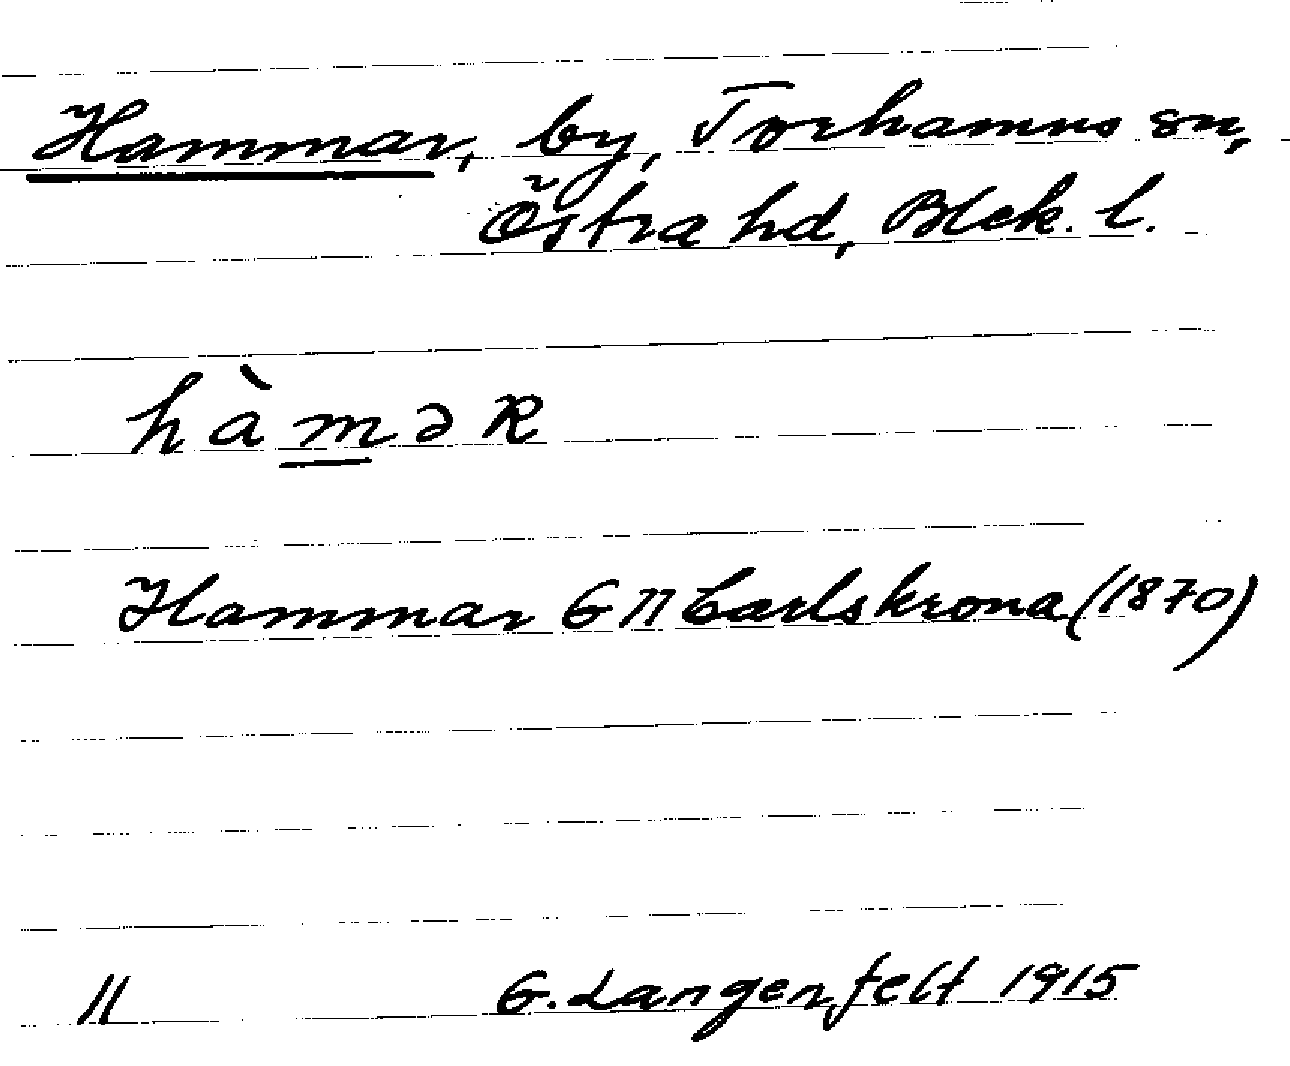 Hammar, by, Torhamns sn,
Östra hd, Blek. l.
hàməR
Hammar G 11 Carlskrona (1870)
11 G. Langenfelt 1915